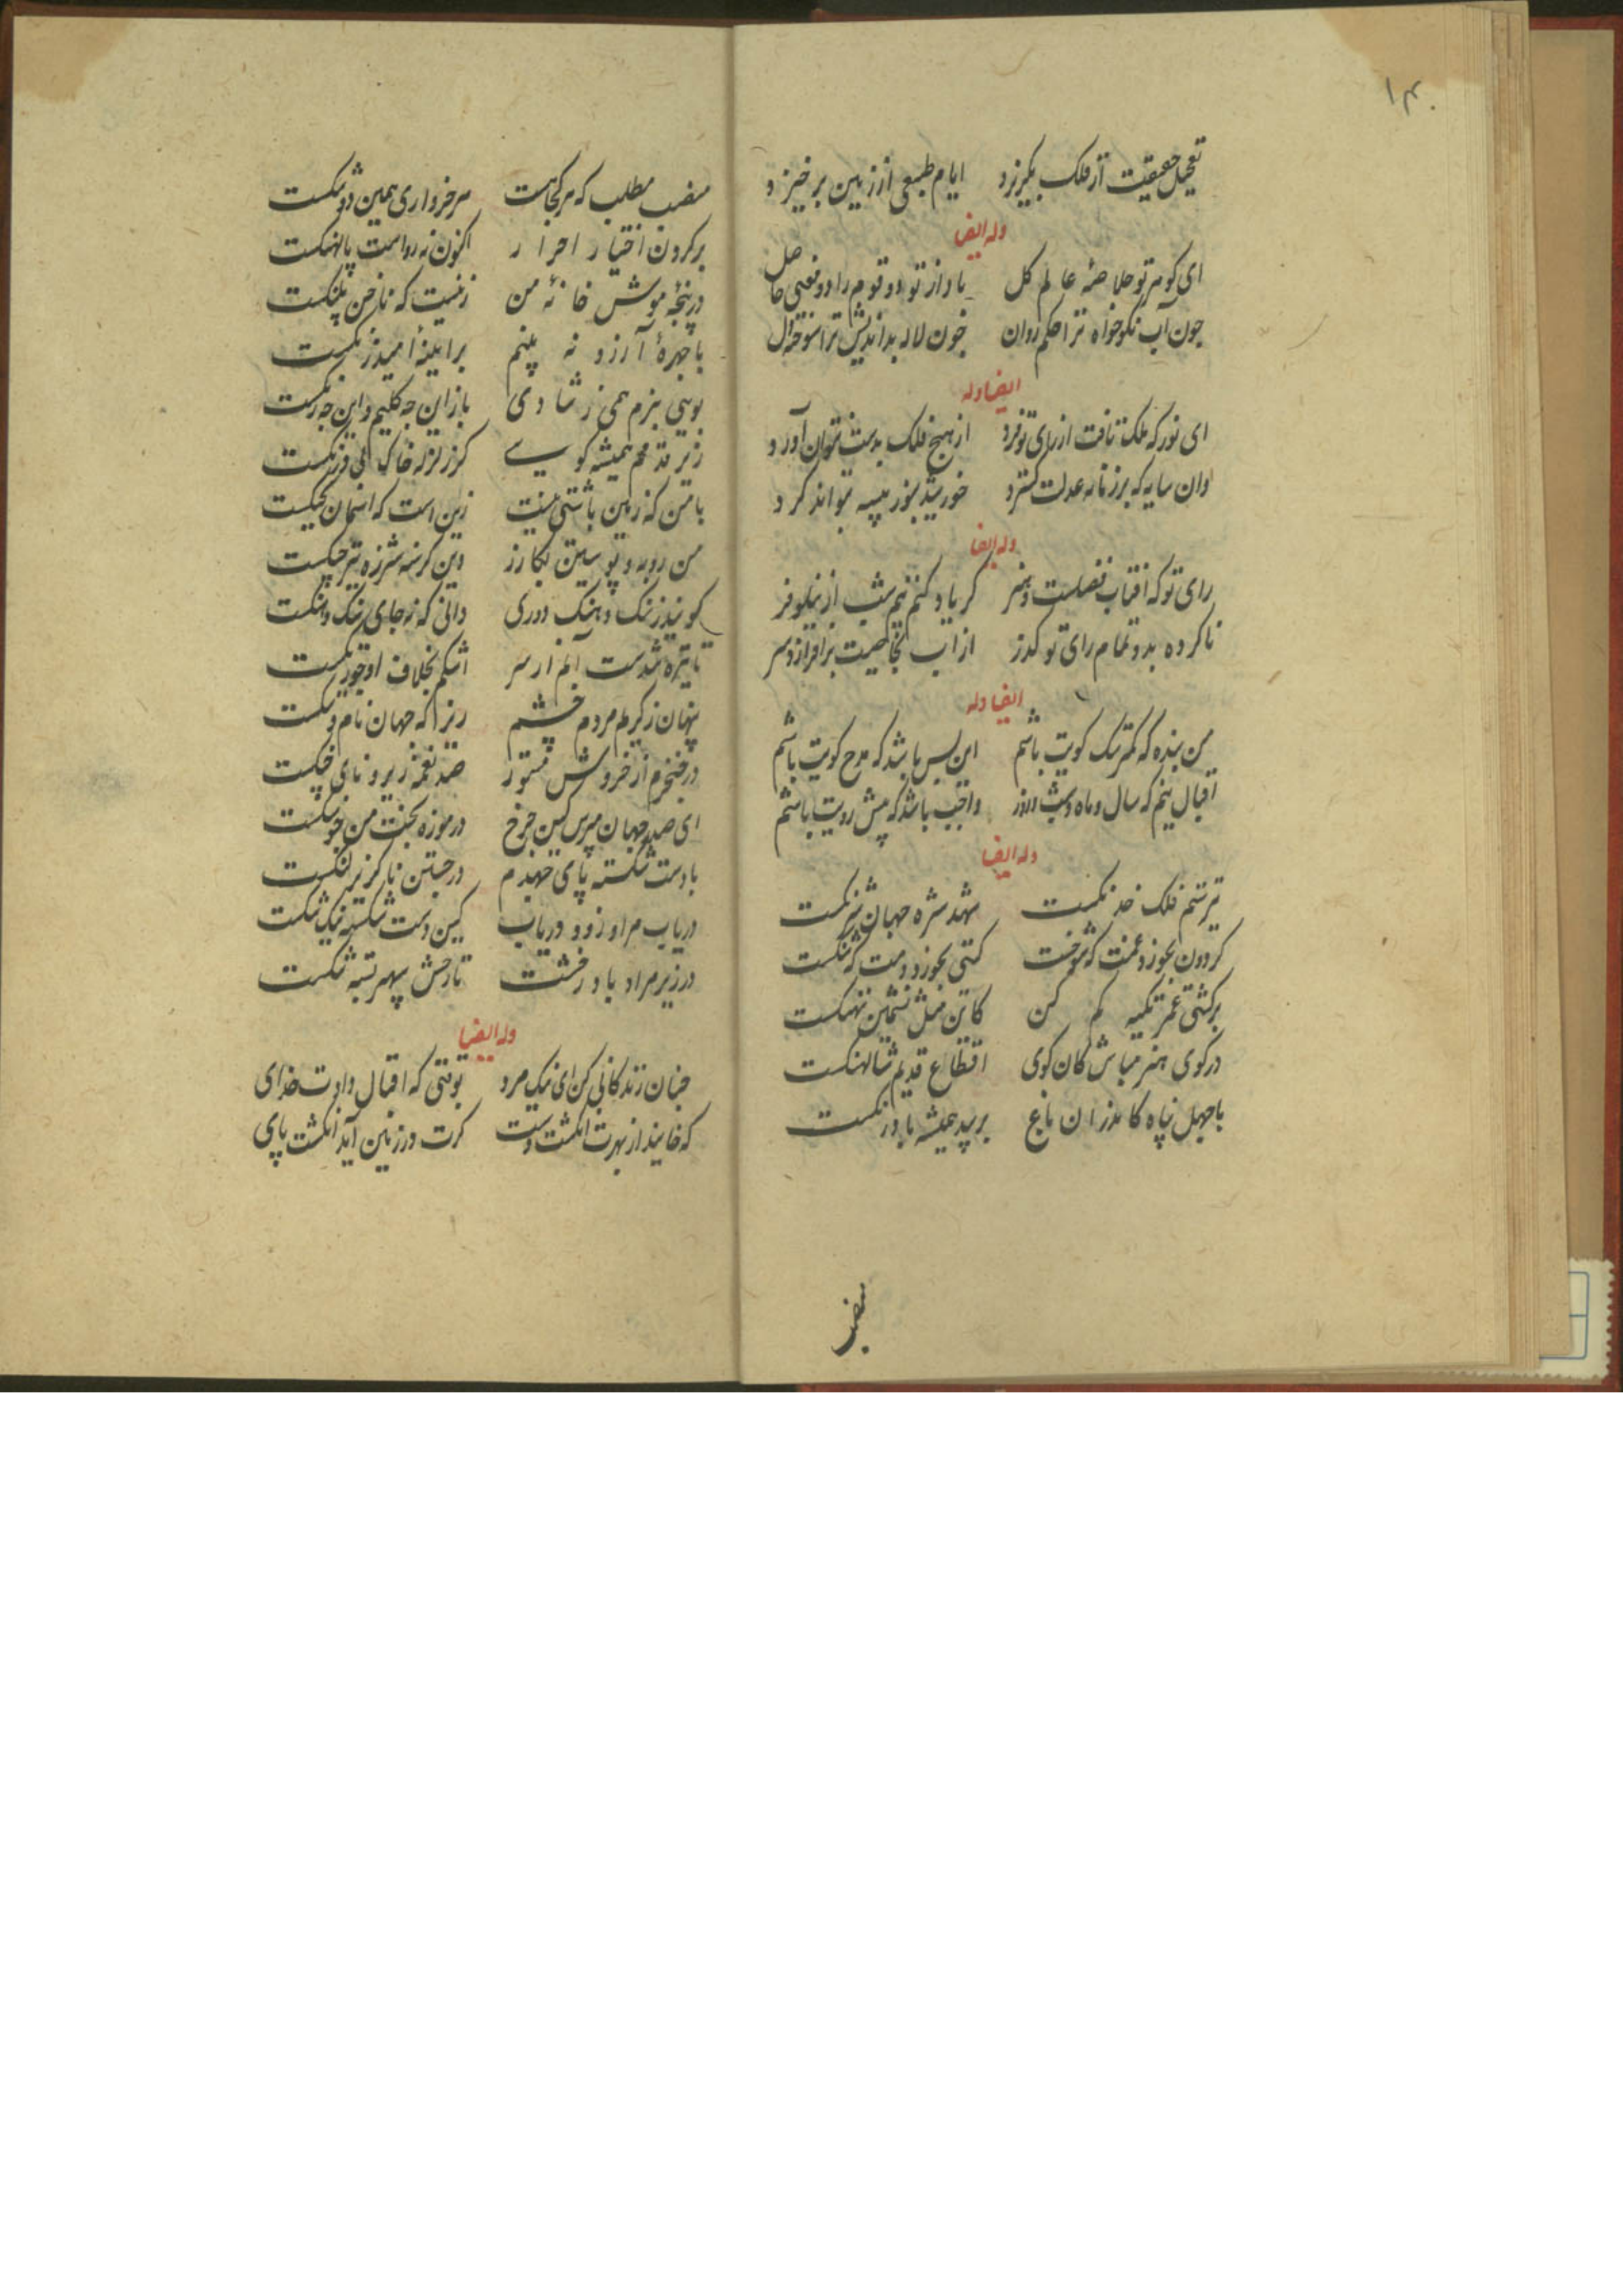 ۱۴۰
تعجیل حقیقیت از فلک بگریزد ایام طبیعی از زمین برخیزد
وله ایضا
ای کوهر تو خلاصهٔ عالم کل باد از تو دو قوم را دو معنی حاصل
چون آب نکوخواه ترا حکم روان چون لاله بداندیش ترا سوخته دل
ایضا وله
ای نور که ملک تافت از رای تو فرد از هیچ فلک بدست نتوان آورد
وان سایه که بر زمانه عدلت کسترد خورشید بنور سپید نتواند کرد
وله ایضا
رای تو که افتاب فضلست و هنر کر یاد کنم نیم شب از نیلوفر
ناکرده بدو تمام رای تو کذر از آب بخاصیت برافرازد سر
ایضا وله
من بنده که کمتر سک کویت باشم این بس باشد که مدح کویت باشم
اقبال نیم که سال و ماه و شب و روز واجب باشد که پیش رویت باشم
وله ایضا
تیر ستم فلک خدنکست شهد شره جهان شرنکست
کردون نخورد غمت که شوخست کیتی نخورد دمت که شنکست
بر کشتی عمر تکیه کم کن کاین نیل نشیمن نهنکست
در کوی هنر مباش کان کوی اقطاع قدیم شالهنکست
با جهل پناه کاندران باغ بر بید همیشه بادرنکست
منصب
منصب مطلب که هر کجا هست سر خرواری همین دو تنکست
بر کردن اختیار احرار اکنون نه رداست پالهنکست
در پنجهٔ موش خانهٔ من زنیست که ناخن پلنکست
با چهرهٔ آرزو نه بینم بر اینهٔ امید زنکست
بویی بزم همی ز شادی باز این چه کلیم و این چه رنکست
زیر قدمم همیشه کویی کز زلزله خاک بی درنکست
با من که زمین بآشتی نیست زین است که اسمان بجنکست
من روبه و پوستین بکازر وین کرسنه شرزه تیز چنکست
کویند ز ننک و هنک دوری دانی که نه جای ننک و هنکست
تا تیره شدست آبم از سر اشکم بخلاف او چو زنکست
پنهان ز کریه مردم چشم زیرا که جهان نام و ننکست
در حنجرم از خروش مستور صد نغمهٔ زیر و نای چنکست
ای صدر جهان مپرس کین چرخ در موزهٔ بخت من چو سنکست
با دست شکسته پای جهدم در جستن ناکزیر لنکست
دریاب مرا و زود دریاب کین دست شکسته نیک تنکست
در زیر مراد باد رخشت تا رخش سپهر تیز تنکست
وله ایضا
چنان زندکانی کن ای نیک مرد بوقتی که اقبال دادت خدای
که خایند از بهرت انکشت دست کرت در زمین آید انکشت پای